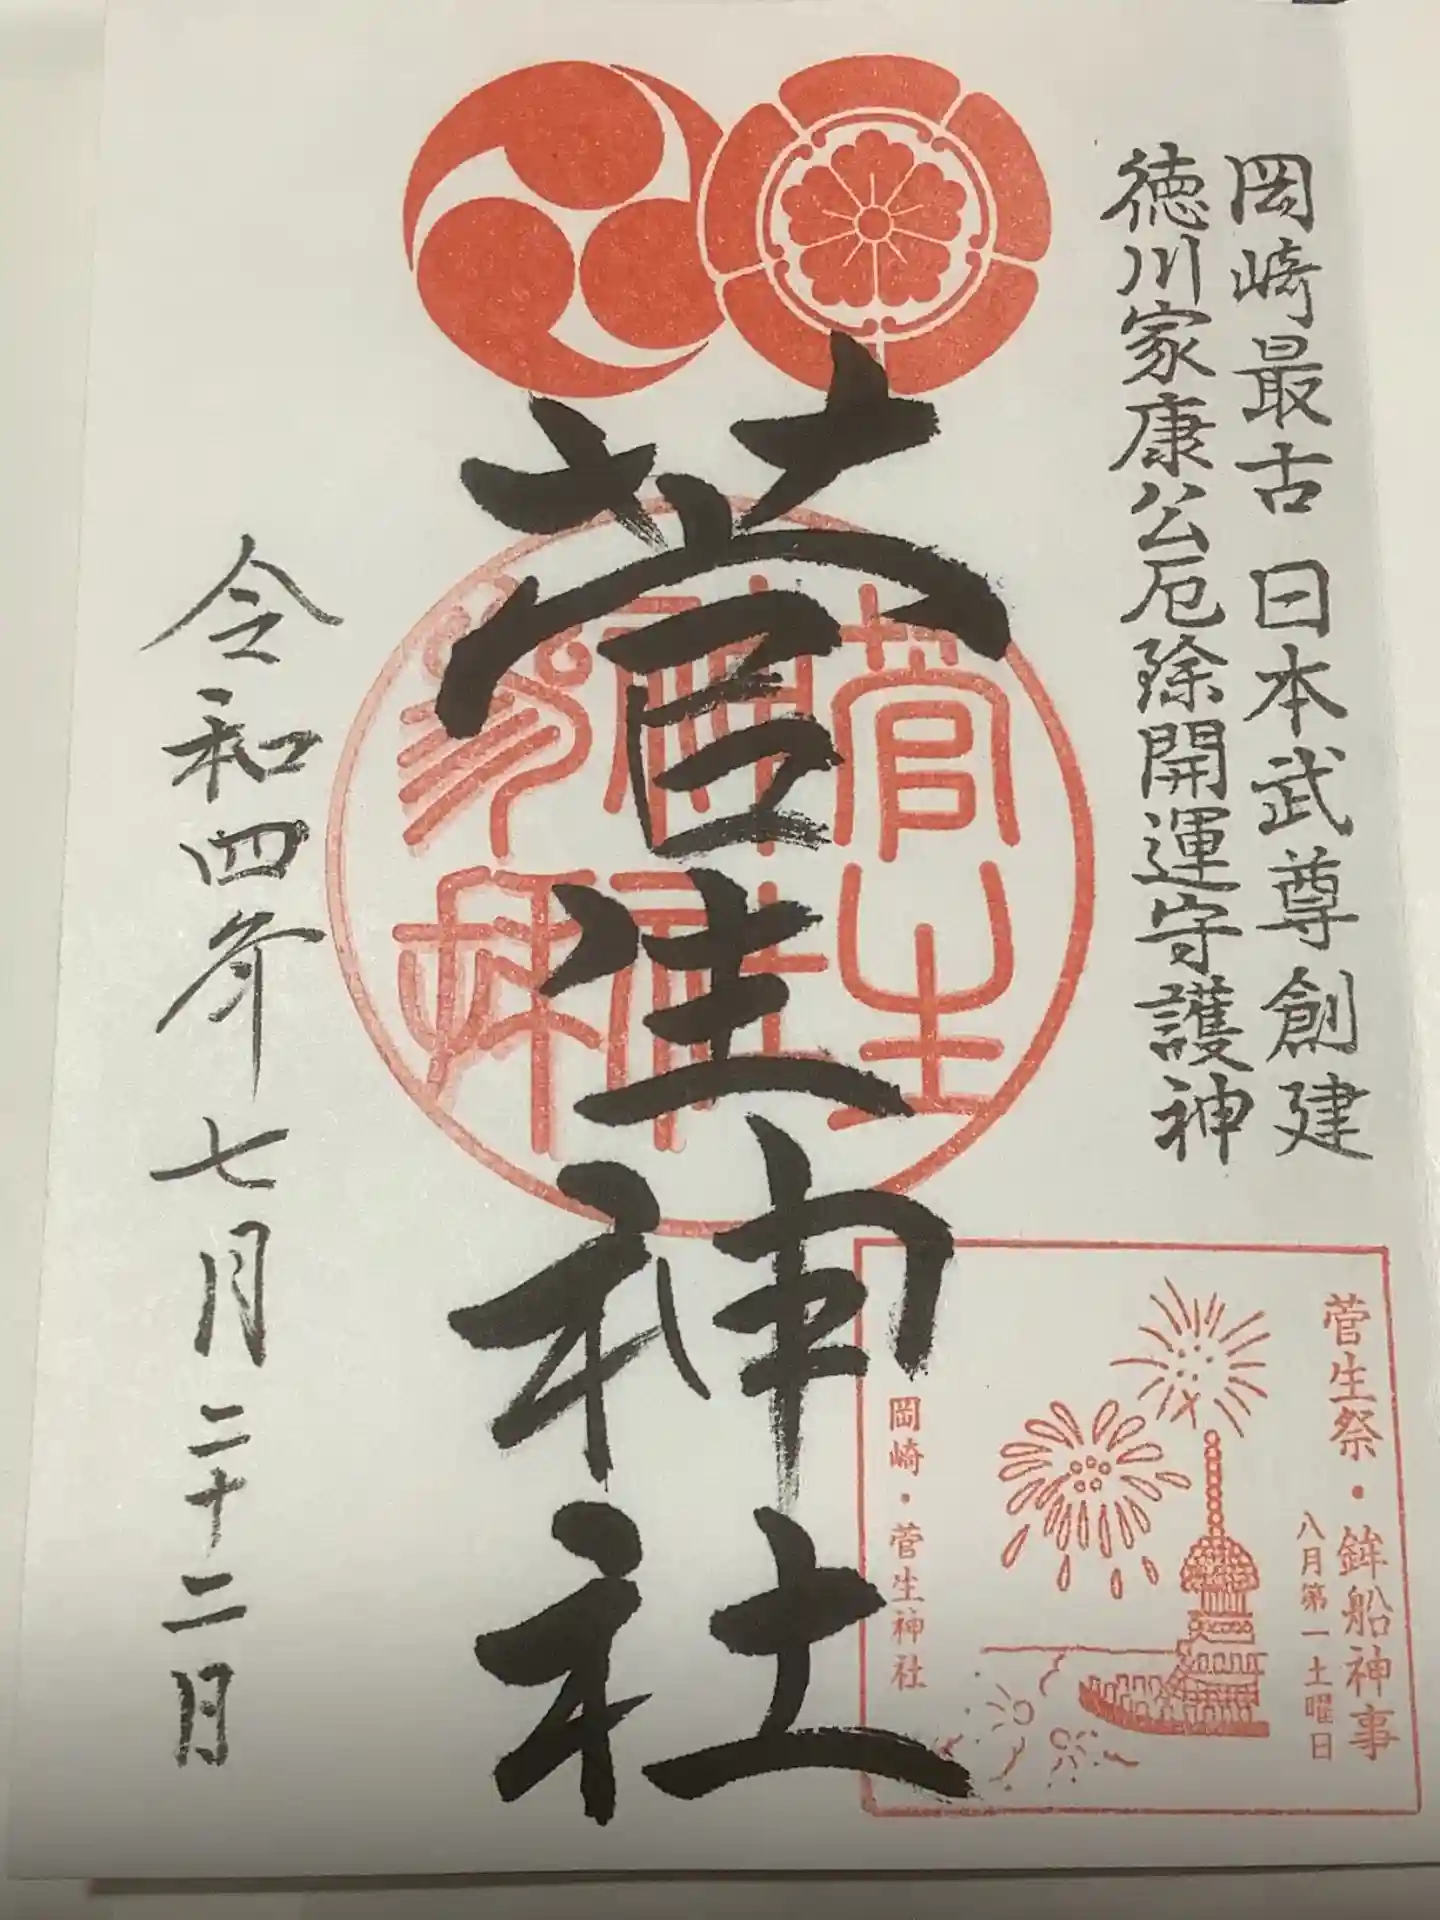 岡崎最古 日本武尊創建
徳川家康公厄除開運守護神
菅生神社
菅生神社参拝
令和四年七月二十二日
菅生祭・鉾船神事
八月第一土曜日
岡崎・菅生神社